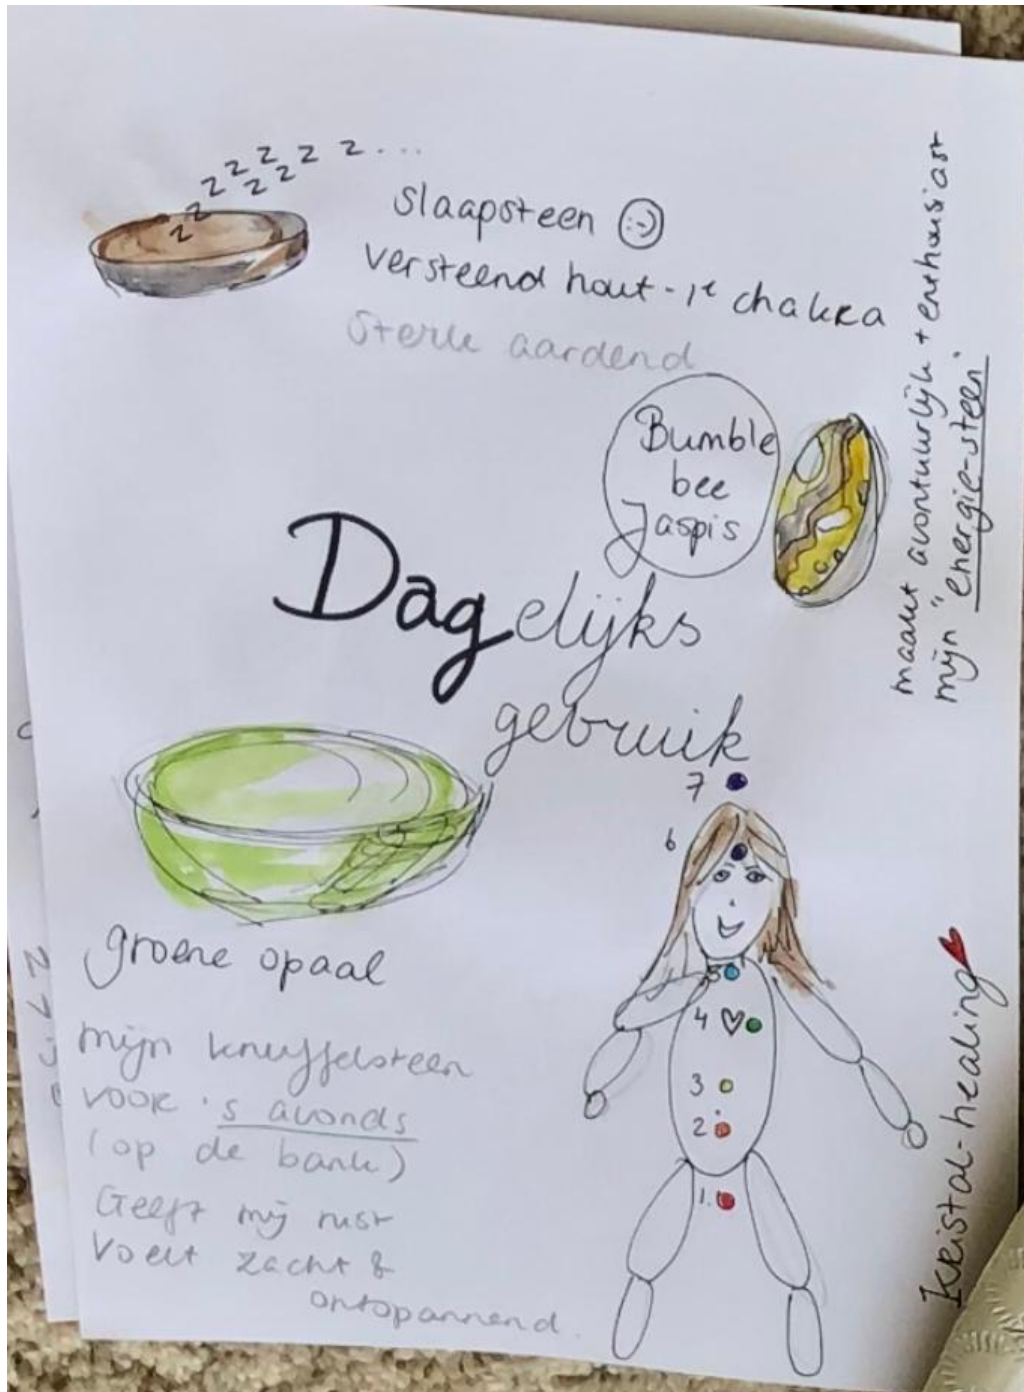 z z z z z z z z z...
slaapsteen :-)
versteend hout - 1e chakra
sterk aardend
Bumble
bee
Jaspis
maakt avontuurlijk + enthousiast
mijn "energie-steen"
Dagelijks
gebruik
groene opaal
mijn knuffelsteen
voor 's avonds
(op de bank)
Geeft mij rust
Voelt zacht &
ontspannend.
7
6
5
4
3
2
1.
Kristal-healing